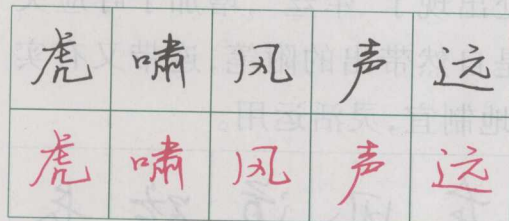 虎啸风声远
虎啸风声远